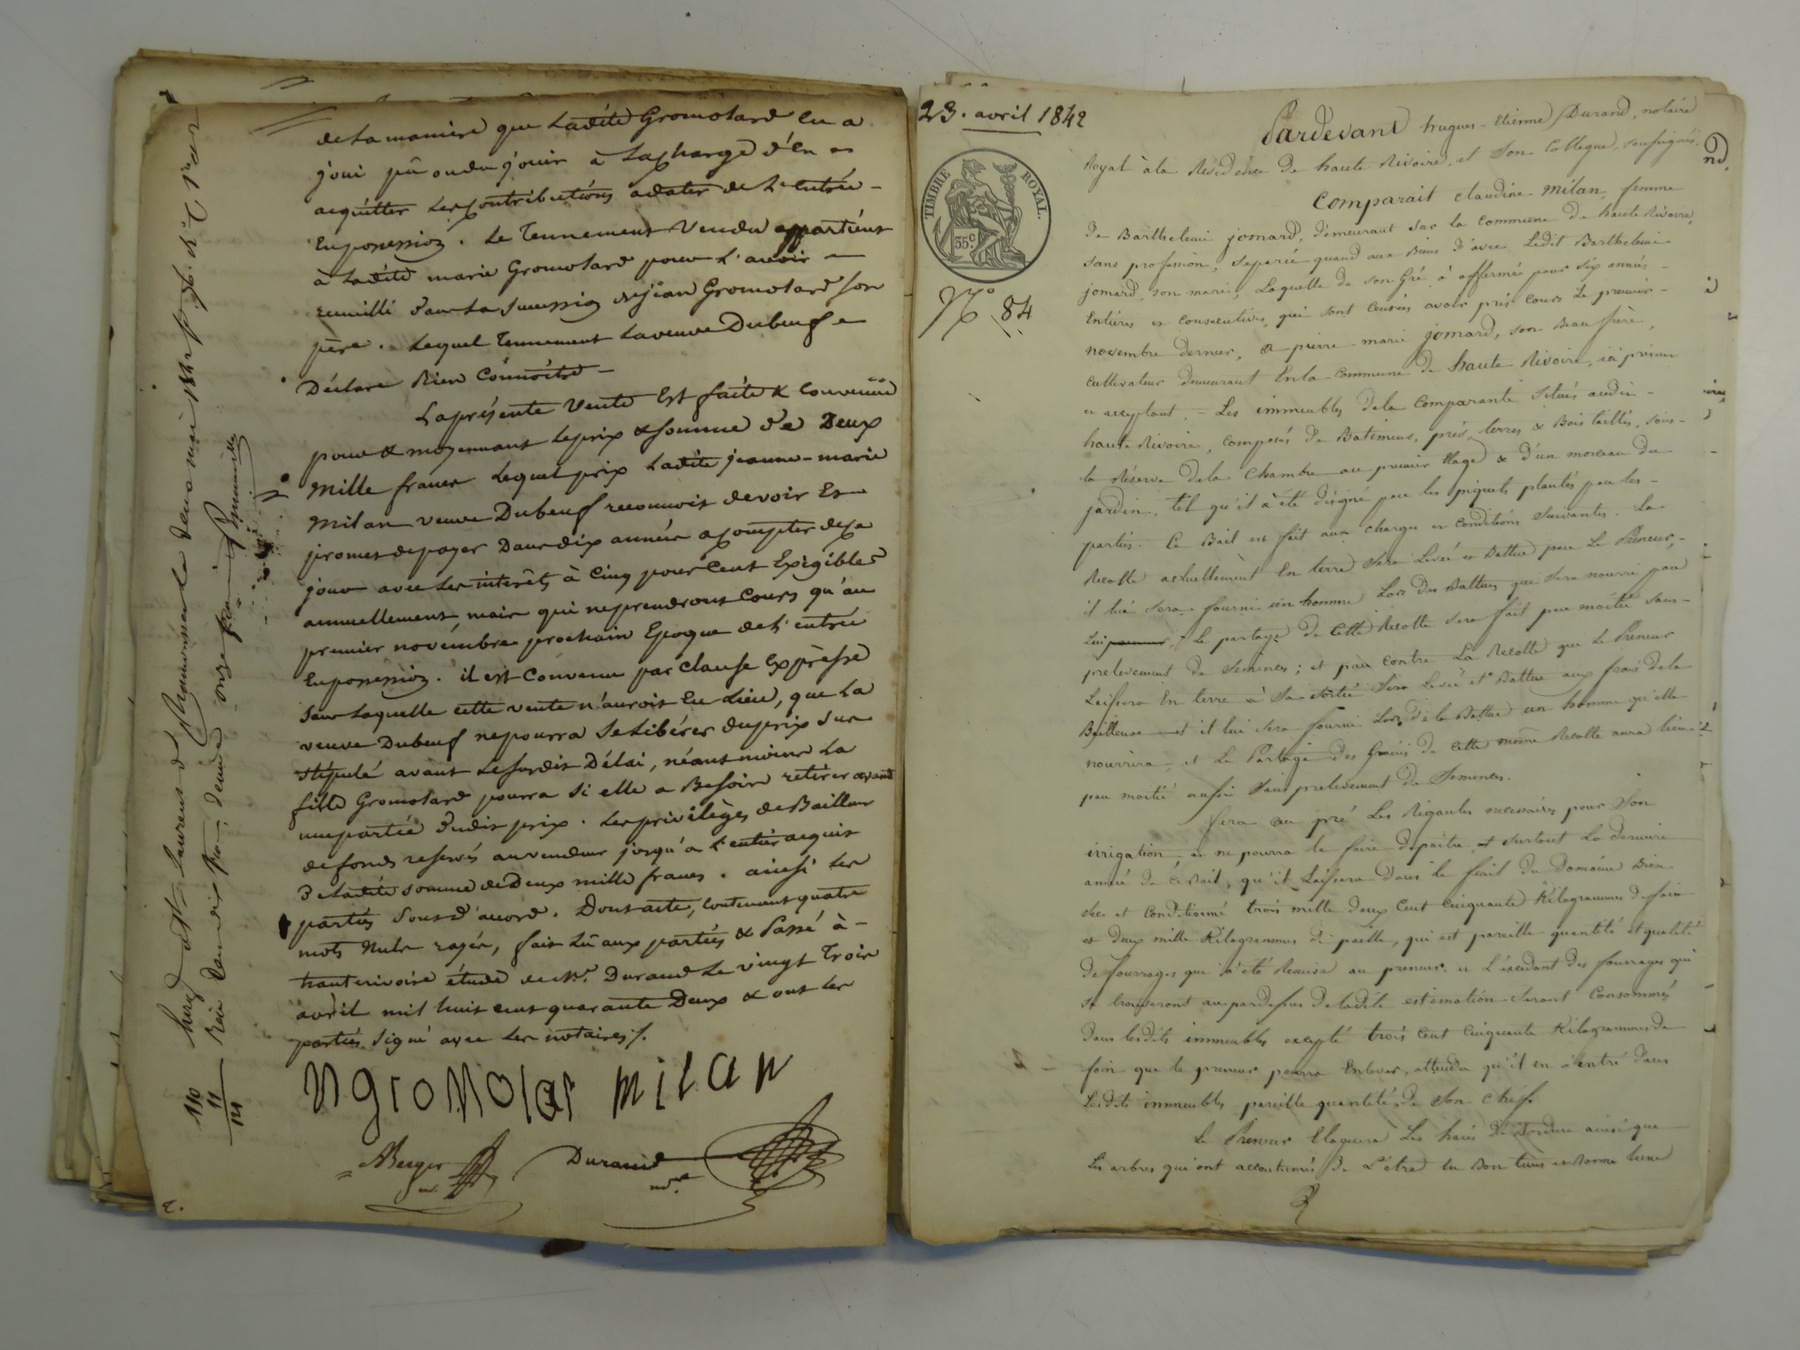 de la maniere que Ladite Gromolard en a
joui pû ou du jouir à La charge d'en
acquitter Les contributions a dater de L'entrée
en possession. Le Tennement Vendu appartient
à Ladite marie Gromolard pour L'avoir
recueilli dans La Succession de jean Gromolard son
père. Lequel Tennement La veuve Dubeuf
Déclare Bien Connoitre
La présente Vente Est faite & Convenue
pour & moyennant Le prix & somme de Deux
Mille francs Lequel prix Ladite jeanne-marie
Milan veuve Dubeuf reconnoit devoir Et
promet de payer Dans dix années a compter de ce
jour avec Les interêts à Cinq pour Cent Exigibles
annuellement, mais qui ne prendront Cours qu'au
premier novembre prochain Epoque de L'entrée
En possession. il est Convenu par clause Expresse
sans Laquelle cette vente n'auroit Eu Lieu, que La
veuve Dubeuf ne pourra se Libérer du prix sus
stipulé avant Le susdit Délai, néantmoins La
fille Gromolard pourra Si elle a Besoin retirer avant
une partie dudit prix. Les privilèges de Bailleur
de fonds reservés au vendeur jusqu'a L'entier acquit
de Ladite somme de Deux mille francs. ainsi Les
parties Sont d'accord. Dont acte, contenant quatre
mots Nuls rayés, fait Lû aux parties & Passé à
hauterivoire étude de Me. Durand Le vingt Trois
avril mil huit cent quarante Deux & ont Les
parties signé avec Les notaires /.
mgromolar milan
Berger
Durand
nore
110
11
121
2.
23. avril 1842
TIMBRE ROYAL.
35c.
No. 84
Pardevant hugues-Etienne Durand, notaire
Royal à la Résidence de haute Rivoire, et son Collegue, soussignés.
Comparait claudine Milan, femme
de Barthelemi jomard, demeurant sur la Commune de haute Rivoire,
sans profession, separée quand aux Biens d'avec Ledit Barthelemi
jomard, son mari; Laquelle de son Gré, à affermé pour six années
Entières et Consecutives, qui sont Censées avoir pris Cours Le premier
novembre dernier, à pierre-marie jomard, son Beau frère,
cultivateur demeurant En la Commune de haute Rivoire, ici présent
et acceptant. = Les immeubles de la Comparante Situés audit
haute Rivoire, Composés de Batimens, prés, terres & Bois taillis, sous
la Réserve de la Chambre au premier Etage & d'un morceau du
jardin, tel qu'il à été désigné par les piquets plantés par les
parties. Ce Bail est fait aux charges et Conditions Suivantes. La
Recolte actuellement En terre Sera Levée et Battue par Le Preneur,
il lui sera fourni un homme Lors des Battues que Sera nourri par
Lui. Le partage de Cette Recolte sera fait par moitié sans
prelevement de Semences; et par contre La Recolte que Le Preneur
Laissera En terre à Sa Sortie Sera Levée et Battue aux frais de la
Bailleuse et il lui Sera fourni Lors de la Battue un homme qu'elle
nourrira, et Le Partage des Grains de Cette même Recolte aura lieu
par moitié aussi Sans prelevement de Semences.
Fera au pré Les Rigaules necessaires pour Son
irrigation, et ne pourra le faire depaitre, & Surtout La derniere
année de ce Bail, qu'il Laissera dans le fenil du Domaine Bien
Sec et Conditionné trois mille deux Cent Cinquante Kilogrammes de foin
et deux mille Kilogrammes de paille, qui est pareille quantité et qualité
de fourrages que à été Remise au preneur. et L'excedant des fourrages qui
se trouveront au pardessus de ladite estimation seront Consommés
Dans lesdits immeubles excepté trois Cent Cinquante Kilogrammes de
foin que le preneur pourra Enlever, attendu qu'il en à entré dans
Lesdits immeubles pareille quantité de Son Chef.
Le Preneur Elaguera Les haies de Bordure ainsi que
Les arbres qui ont accoutumés de L'etre En Bon tems et Bonne lune